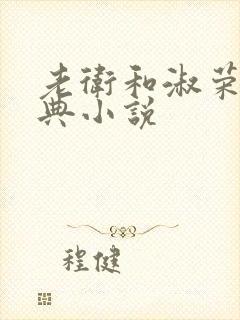 老衛和淑荣
典小説
程健